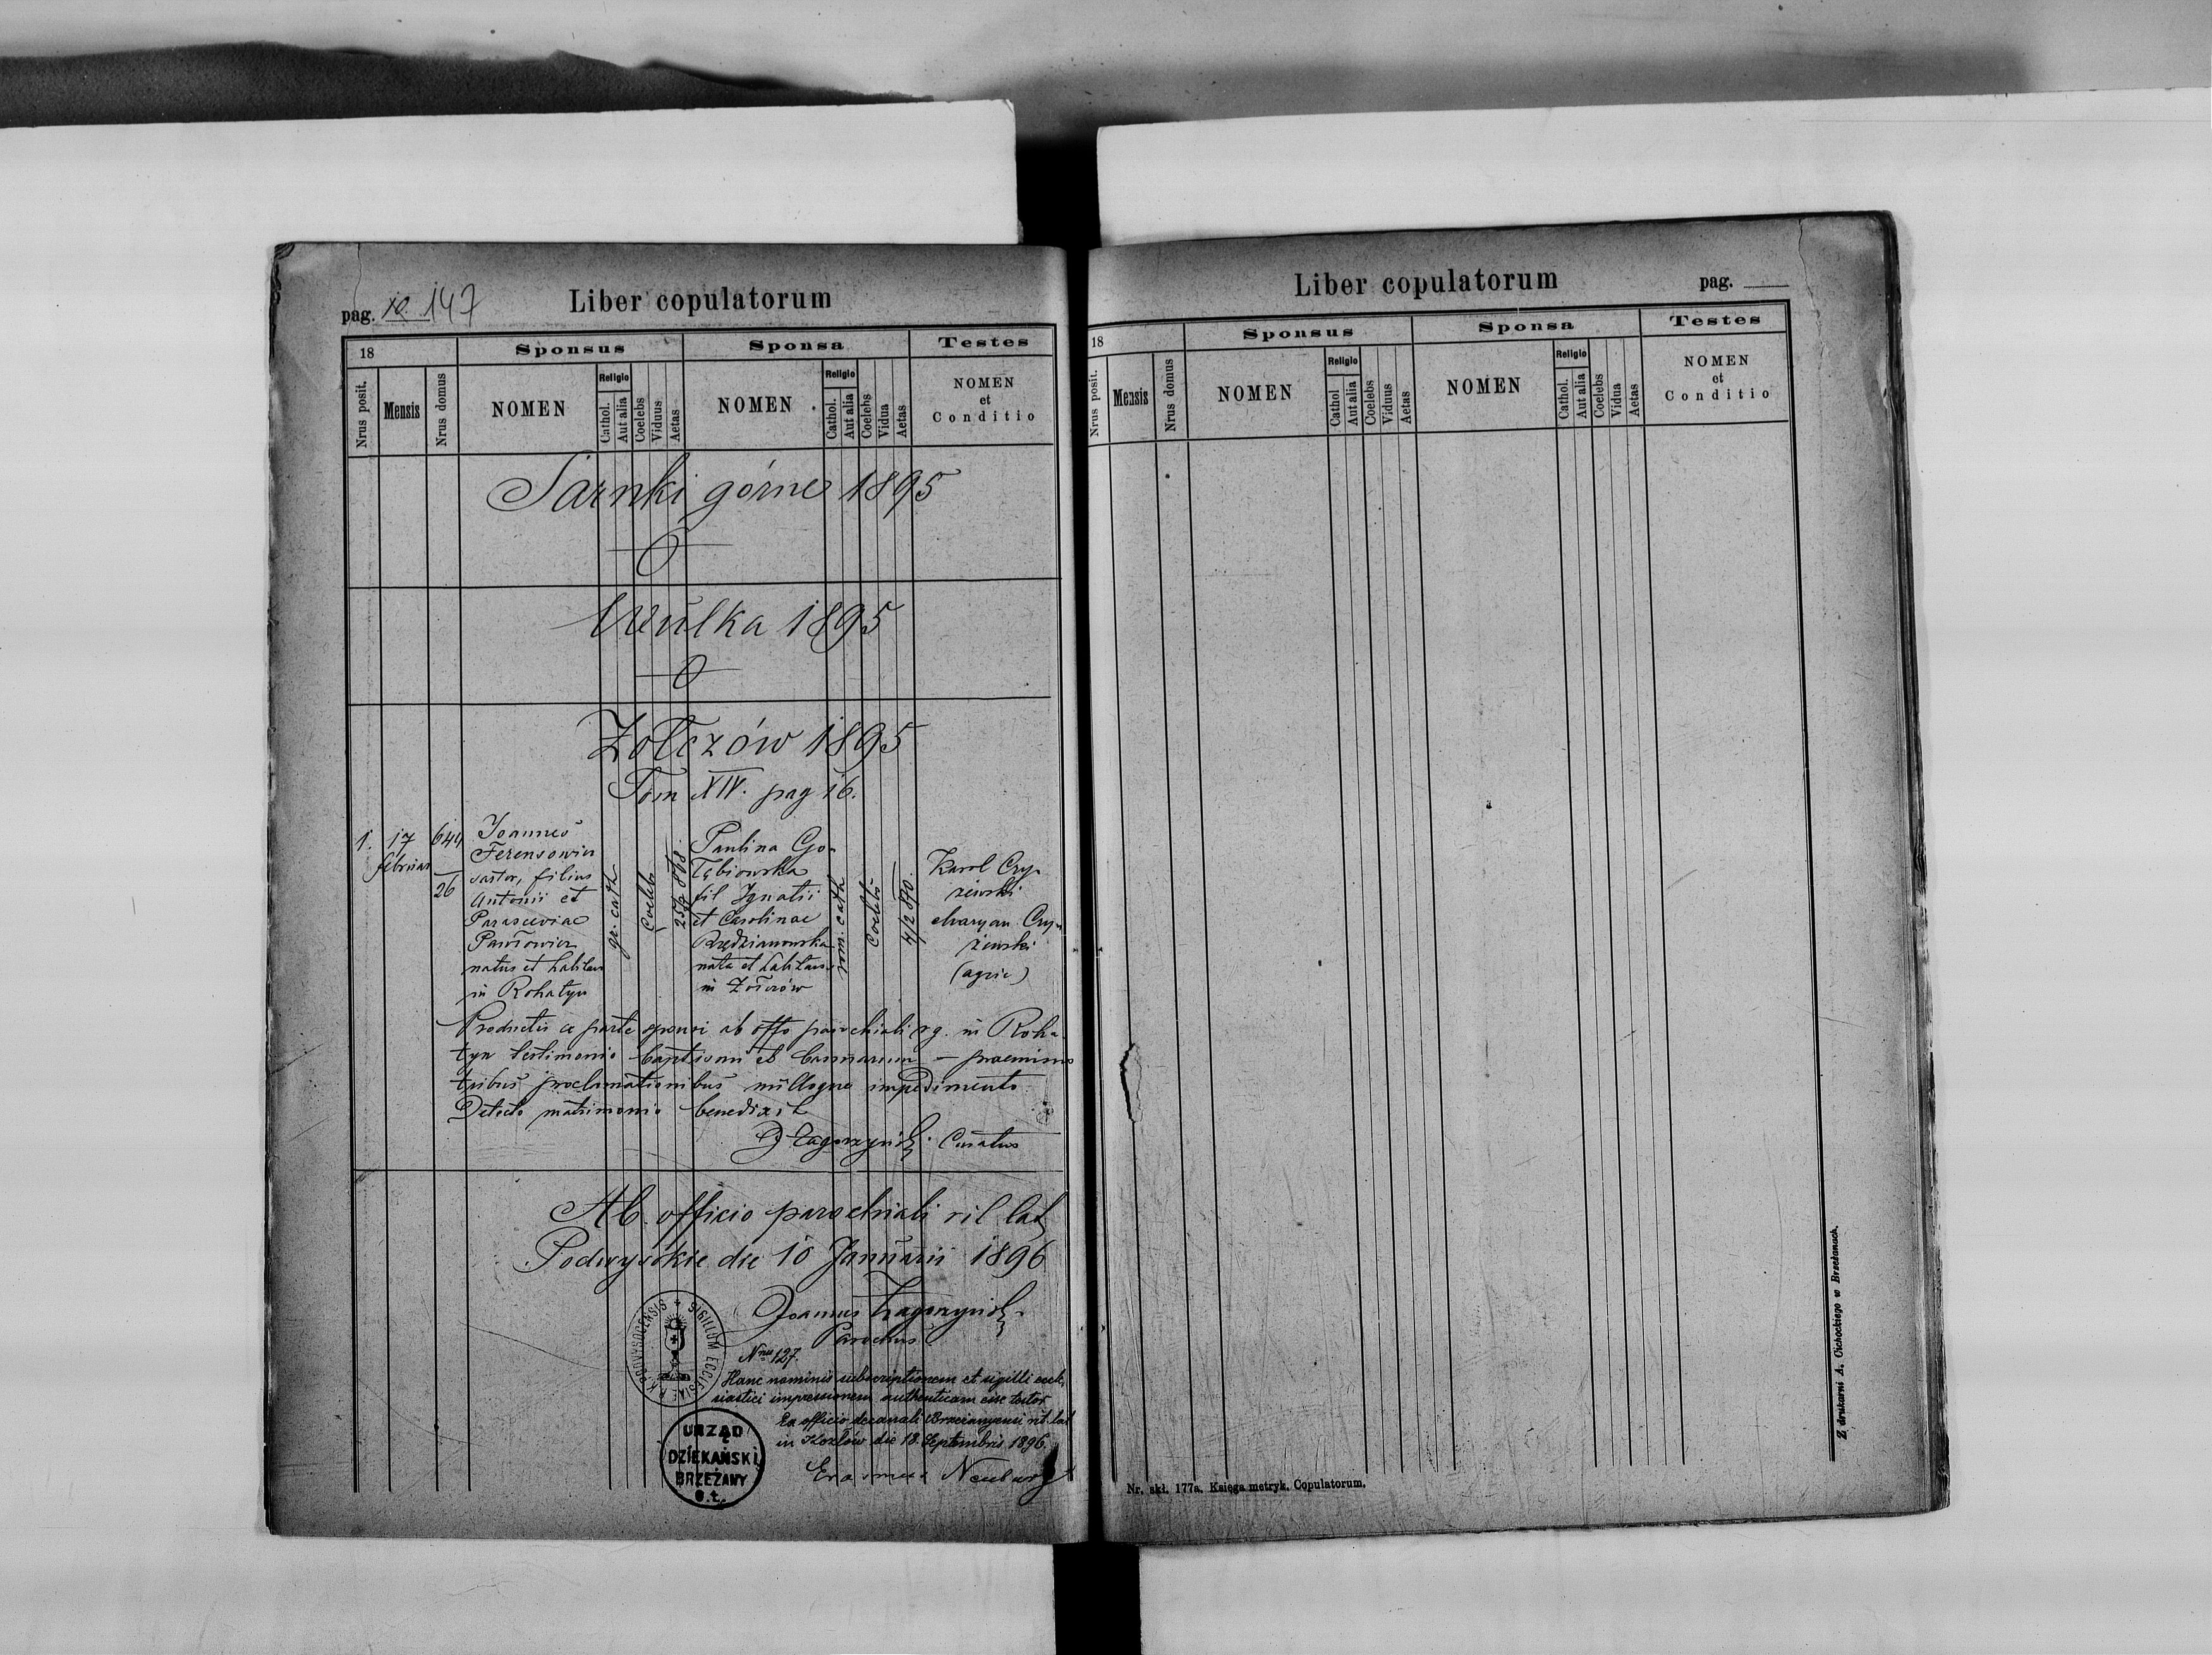 pag. 10. 147
Liber copulatorum
18
Sponsus
Sponsa
Testes
Nrus posit.
Mensis
Nrus domus
NOMEN
Religio
Cathol.
Aut alia
Coelebs
Viduus
Aetas
NOMEN
Religio
Cathol.
Aut alia
Coelebs
Vidua
Aetas
NOMEN
et
Conditio
Sarnki górne 1895
Wulka 1895
Żołczów 1895
Tom XIV. pag 16.
1.
17
februar
644
26
Joannes
Ferensowicz
sartor, filius
Antonii et
Parasceviae
Pawłowicz
natus et habitans
in Rohatyn
gr. cath
Coelebs
Paulina Go-
łębiowska
fil Ignatii
et Carolinae
nata et habitans
in Żołczów
rom. cath
Coelebs
Karol Czy-
żewski
Maryan Czy-
żewski
(agric)
Productis a parte sponsi ab offo parochiali rg. in Roha-
tyn testimonio baptismi et bannorum – praemissis
tribus proclamationibus nulloque impedimento
Detecto matrimonio benedixit
J Zagorzyński Curatus
Ab officio parochiali rit lat
Podwysokie die 10 Januarii 1896
Joannes Zagorzyński
Parochus
SIGILLUM ECCLESIAE R. PODVYSOCENSIS
Nrus 127.
Hanc nominis subscriptionem et sigilli eccle-
siastici impressionem authenticam esse testor
Ex officio decanali Brzezanyensi rit. lat
in Kozłów die 18. Septembris 1896.
Erasmus Neuburg
URZĄD
DZIEKAŃSKI
BRZEŻANY
o.ł.
Liber copulatorum
pag.
18
Sponsus
Sponsa
Testes
Nrus posit.
Mensis
Nrus domus
NOMEN
Religio
Cathol
Aut alia
Coelebs
Viduus
Aetas
NOMEN
Religio
Cathol.
Aut alia
Coelebs
Vidua
Aetas
NOMEN
et
Conditio
Z drukarni A. Cichockiego w Brzeżanach.
Nr. skł. 177a. Księga metryk. Copulatorum.